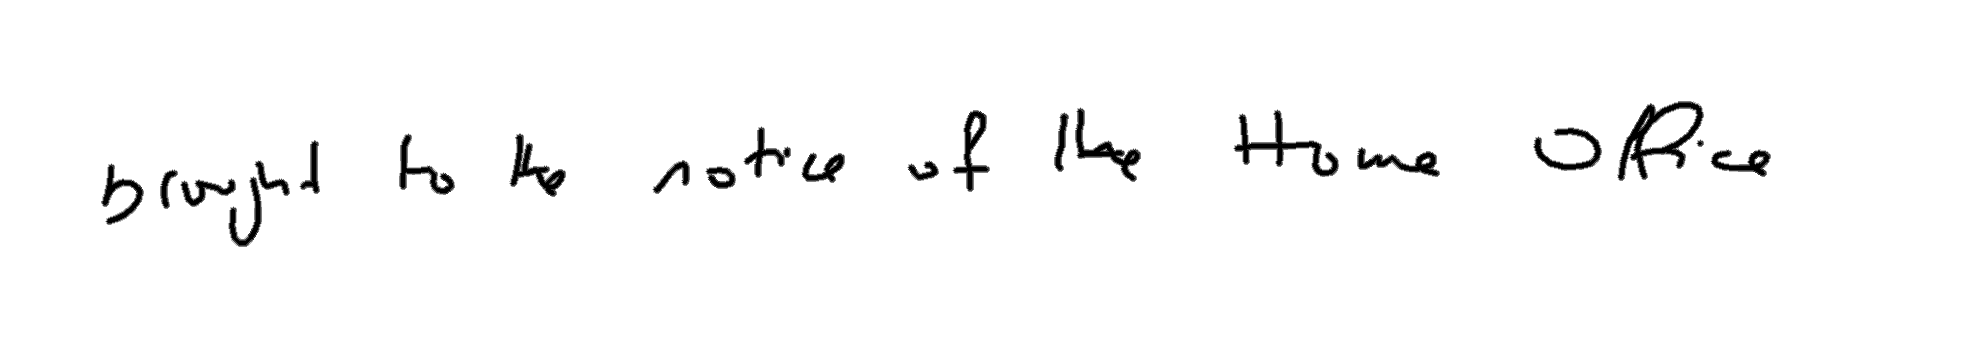 brought to the notice of the Home Office